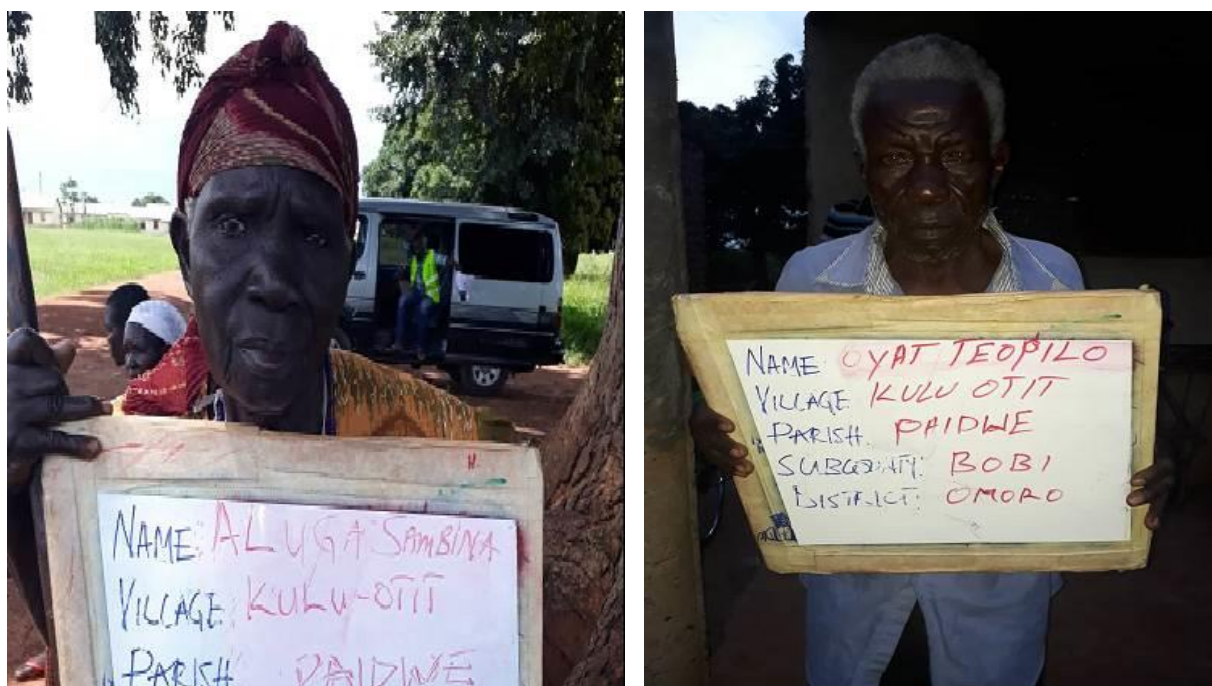 NAME: ALUGA SAMBINA
VILLAGE: KULU-OTIT
PARISH PAIDWE
NAME: OYAT TEOPILO
VILLAGE KULU OTIT
PARISH. PAIDWE
SUBCOUNTY: BOBI
DISTRICT: OMORO